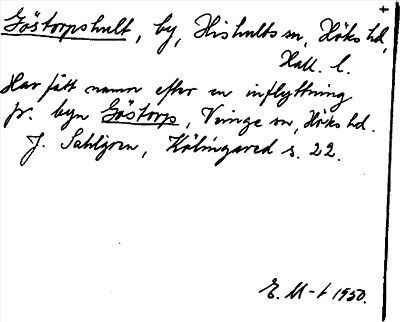 Göstorpshult, by, Hishults sn, Höks hd,
Hall. l.
Har fått namn efter en inflyttning
fr. byn Göstorp, Veinge sn, Höks hd.
J. Sahlgren, Kölingared s. 22.
E. M-t 1950.